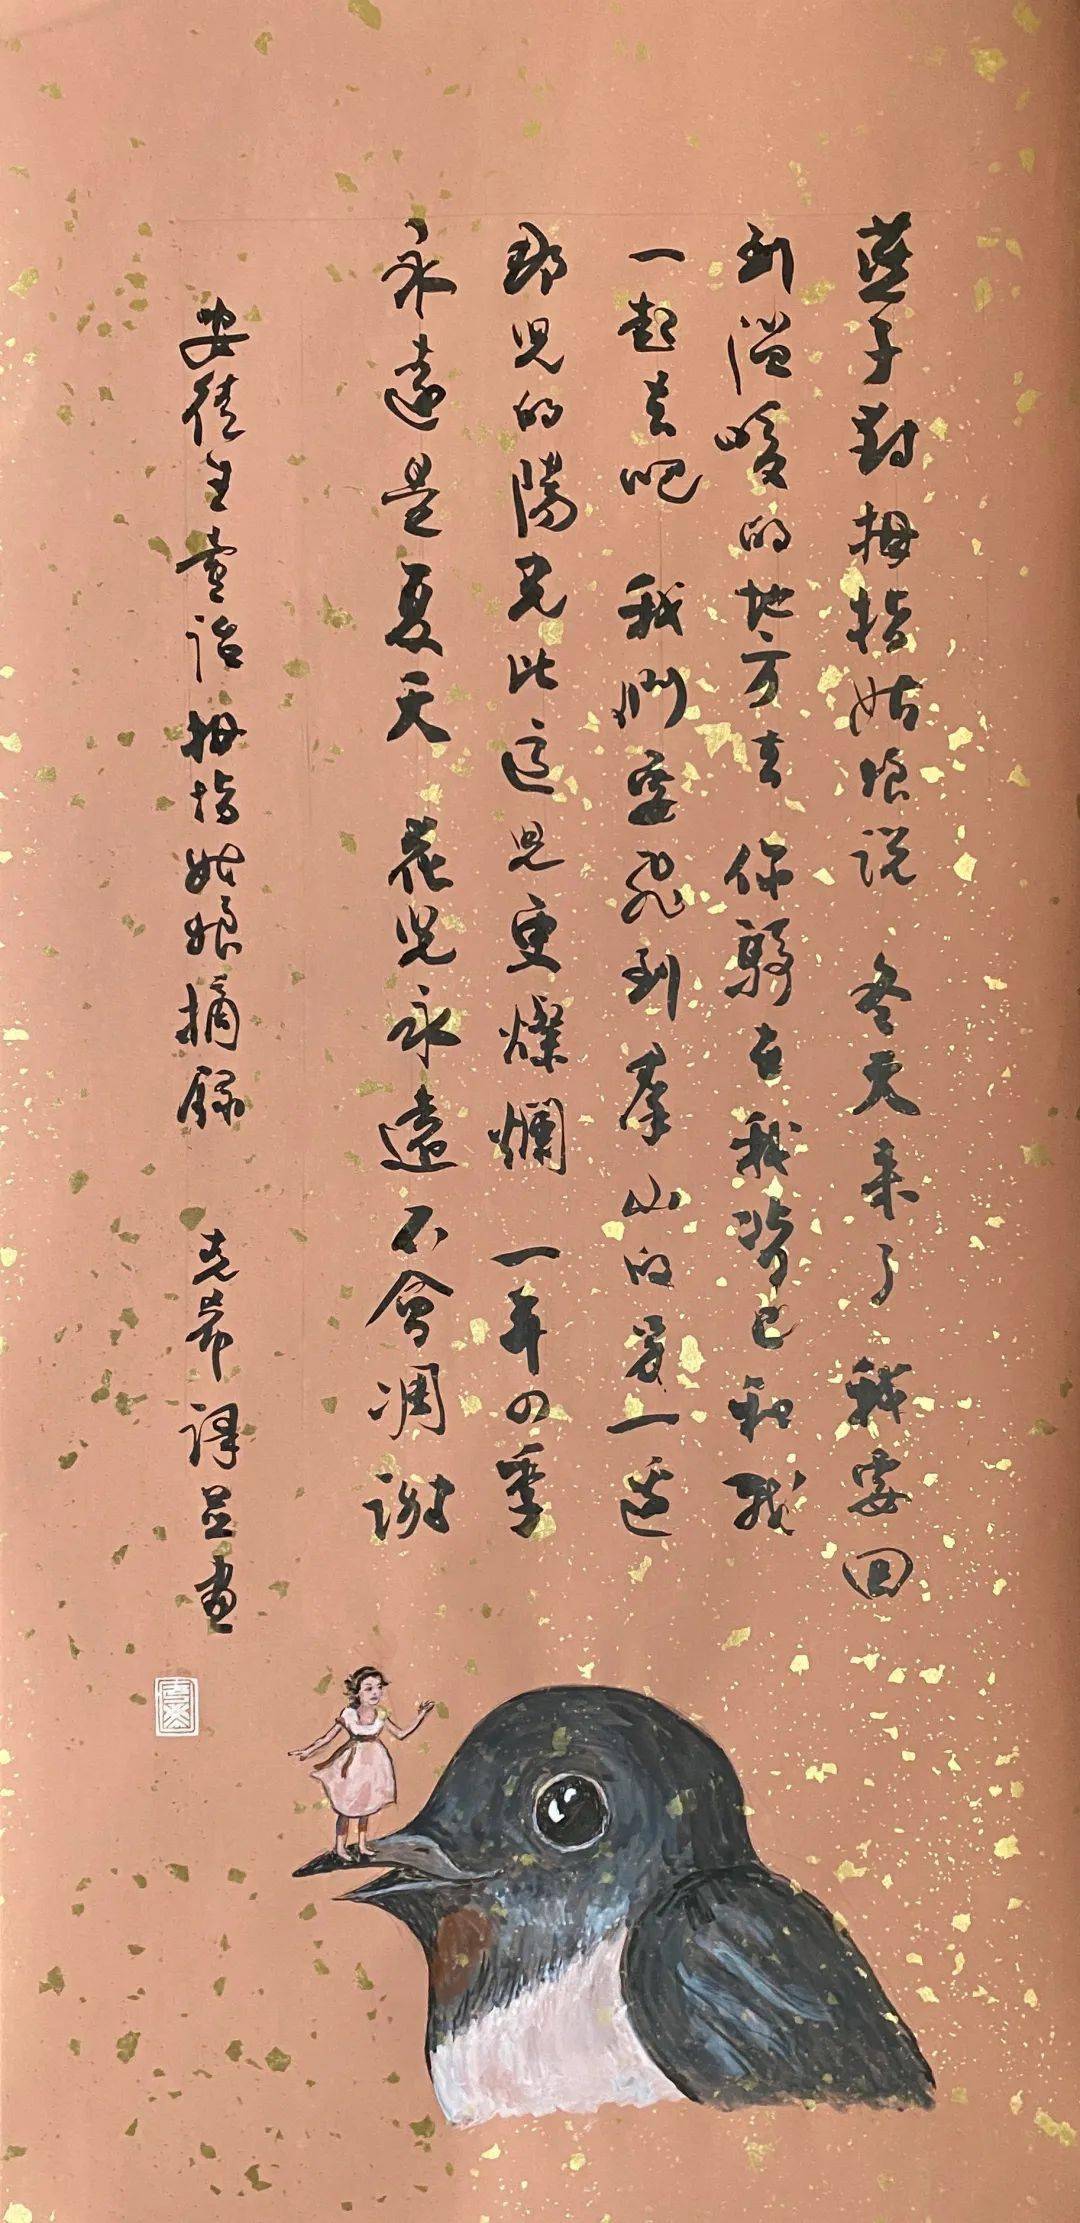 燕子對拇指姑娘说 冬天来了 我要回
到温暖的地方去 你騎在我背上和我
一起去吧 我們要飛到羣山的另一邊
那兒的陽光比這兒更燦爛 一年四季
永遠是夏天 花兒永遠不會凋謝
安徒生童話拇指姑娘摘録 克希譯並畫